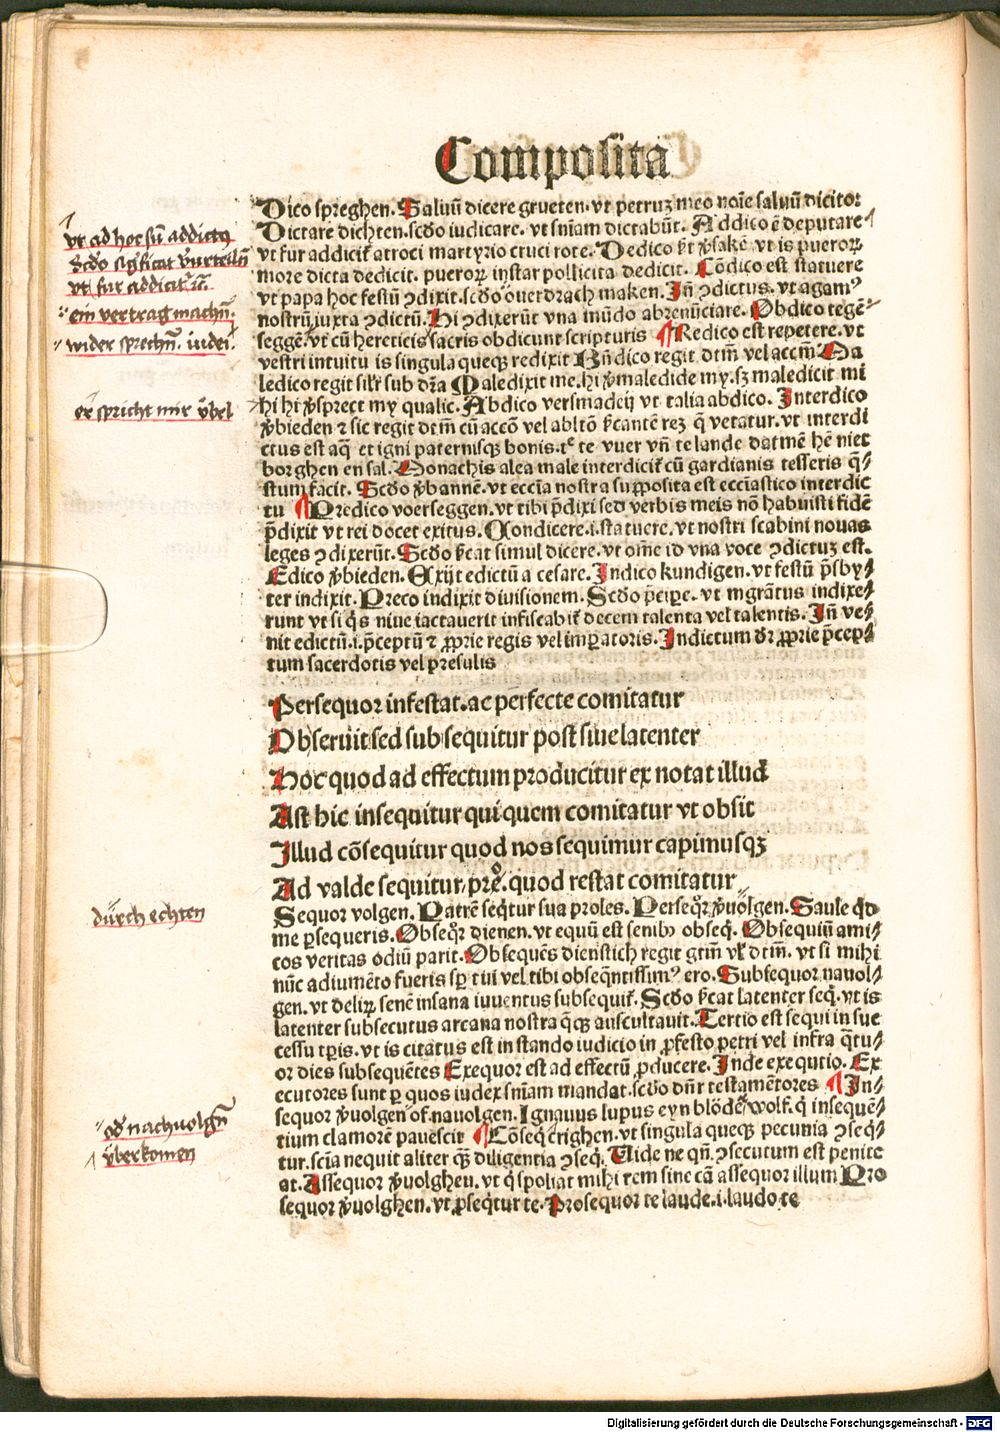 Composita
Dico spreghen. Saluū dicere grueten. vt petrus meo noīe saluū dicitor
Dictare dichten. scd̄o iudicare. vt sniam dictabūt. Addico ē deputare
vt fur addicit̄ atroci martyrio cruci rote. Dedico is pueroꝝ
more dicta dedicit. pueroꝝ instar pollicita dedicit. Cōdico est statuere
vt papa hoc festū ꝯdixit. scd̄o ouerdrach maken. Iñ ꝯdictus. vt agamꝰ
nostrū iuxta ꝯdictū. Hi ꝯdixerūt vna mūdo abrenūciare. Obdico tegē⸗
seggē. vt cū hereticis sacris obdicunt scripturis ¶ Redico est repetere. vt
vestri intuitu is singula queqꝫ redixit Bn̄dico regit dtm̄ vel accm̄ Ma
ledico regit silr̄ sub dr̄a Maledixit me. hi v̓maledide my. sꝫ maledicit mi
hi hi v̓sprect my qualic. Abdico versmadeij vt talia abdico. Interdico
v̓bieden ⁊ sic regit dtm̄ cū accō vel abltō vetatur. vt interdi
ctus est aq̄ et igni paternisqꝫ bonis. te vuer vn̄ te lande datmē hē niet
borghen en sal. Monachis alea male interdicit̄ cū gardianis tesseris q̄⸗
stum facit. Scd̄o v̓bannē. vt eccīa nostra supposita est ecclīastico interdic
tu ¶ Predico voerseggen. vt tibi p̄dixi sed verbis meis nō habuisti fidē
p̄dixit vt rei docet exitus. Condicere .i. statuere. vt nostri scabini nouas
leges ꝯdixerūt. Scd̄o simul dicere. vt om̄e id vna voce ꝯdictuꝫ est.
Edico v̓bieden. Exijt edictū a cesare. Indico kundigen. vt festū p̄sby⸗
ter indixit. Preco indixit diuisionem. Scd̄o vt mgrātus indixe⸗
runt vt si q̄s niue iactauerit decem talenta vel talentis. Iñ ve⸗
nit edictū .i. p̄ceptū ⁊ ꝓprie regis vel imꝑatoris. Indictum dr̄ ꝓprie p̄cep⸗
tum sacerdotis vel presulis
Persequor infestat. ac perfecte comitatur
Obseruit sed subsequitur post siue latenter
Hoc quod ad effectum producitur exnotat illud
Ast hic insequitur qui quem comitatur vt obsit
Illud cōsequitur quod nos sequimur capimusqꝫ
Ad valde sequitur. quod restat comitatur
Sequor volgen. Patrē seq̄tur sua proles. Perseq̄r v̓uolgen. Saule q̄d
me ꝑsequeris. Obseq̄r dienen. vt equū est senibꝰ obseq̄. Obsequiū ami⸗
cos veritas odiū parit. Obsequēs dienstich regit gtm̄ vl̓ dtm̄. vt si mihi
nūc adiumēto fueris sꝑ tui vel tibi obseq̄ntissimꝰ ero. Subsequor nauol⸗
gen. vt deliꝝ senē insana iuuentus subsequit̄. Scd̄o latenter seq̄. vt is
latenter subsecutus arcana nostra q̄qꝫ auscultauit. Tertio est sequi in suc
cessu tꝑis. vt is citatus est in stando iudicio in ꝓfesto petri vel infra q̄tu⸗
or dies subsequētes Exequor est ad effectū ꝓducere. Inde exequtio. Ex
ecutores sunt ꝑ quos iudex sniam mandat. scd̄o dn̄r testamētores ¶ In⸗
sequor v̓uolgen of nauolgen. Ignauus lupus eyn blöde wolf. q̄ insequē⸗
tium clamorē pauescit ¶ Cōseq̄ crighen. vt singula queqꝫ pecunia ꝯseq̄⸗
tur. scīa nequit aliter q̄ꝫ diligentia ꝯseq̄. Vide ne qn̄. ꝯsecutum est penite
at. Assequor v̓uolghen. vt q̄ spoliat mihi rem sine cā assequor illum Pro
sequor v̓uolghen. vt ꝓseq̄tur te. Prosequor te laude .i. laudo te
vt ad hoc sū addictus
Scd̄o significat v̓urteiln̄
vt fur addicat̄
ein vertrag machn̄.
wider sprechn̄. iudei.
er spricht mir v̈bel
durch echten
od̓ nachuolgn̄
v̈berkomen
Digitalisierung gefördert durch die Deutsche Forschungsgemeinschaft - DFG